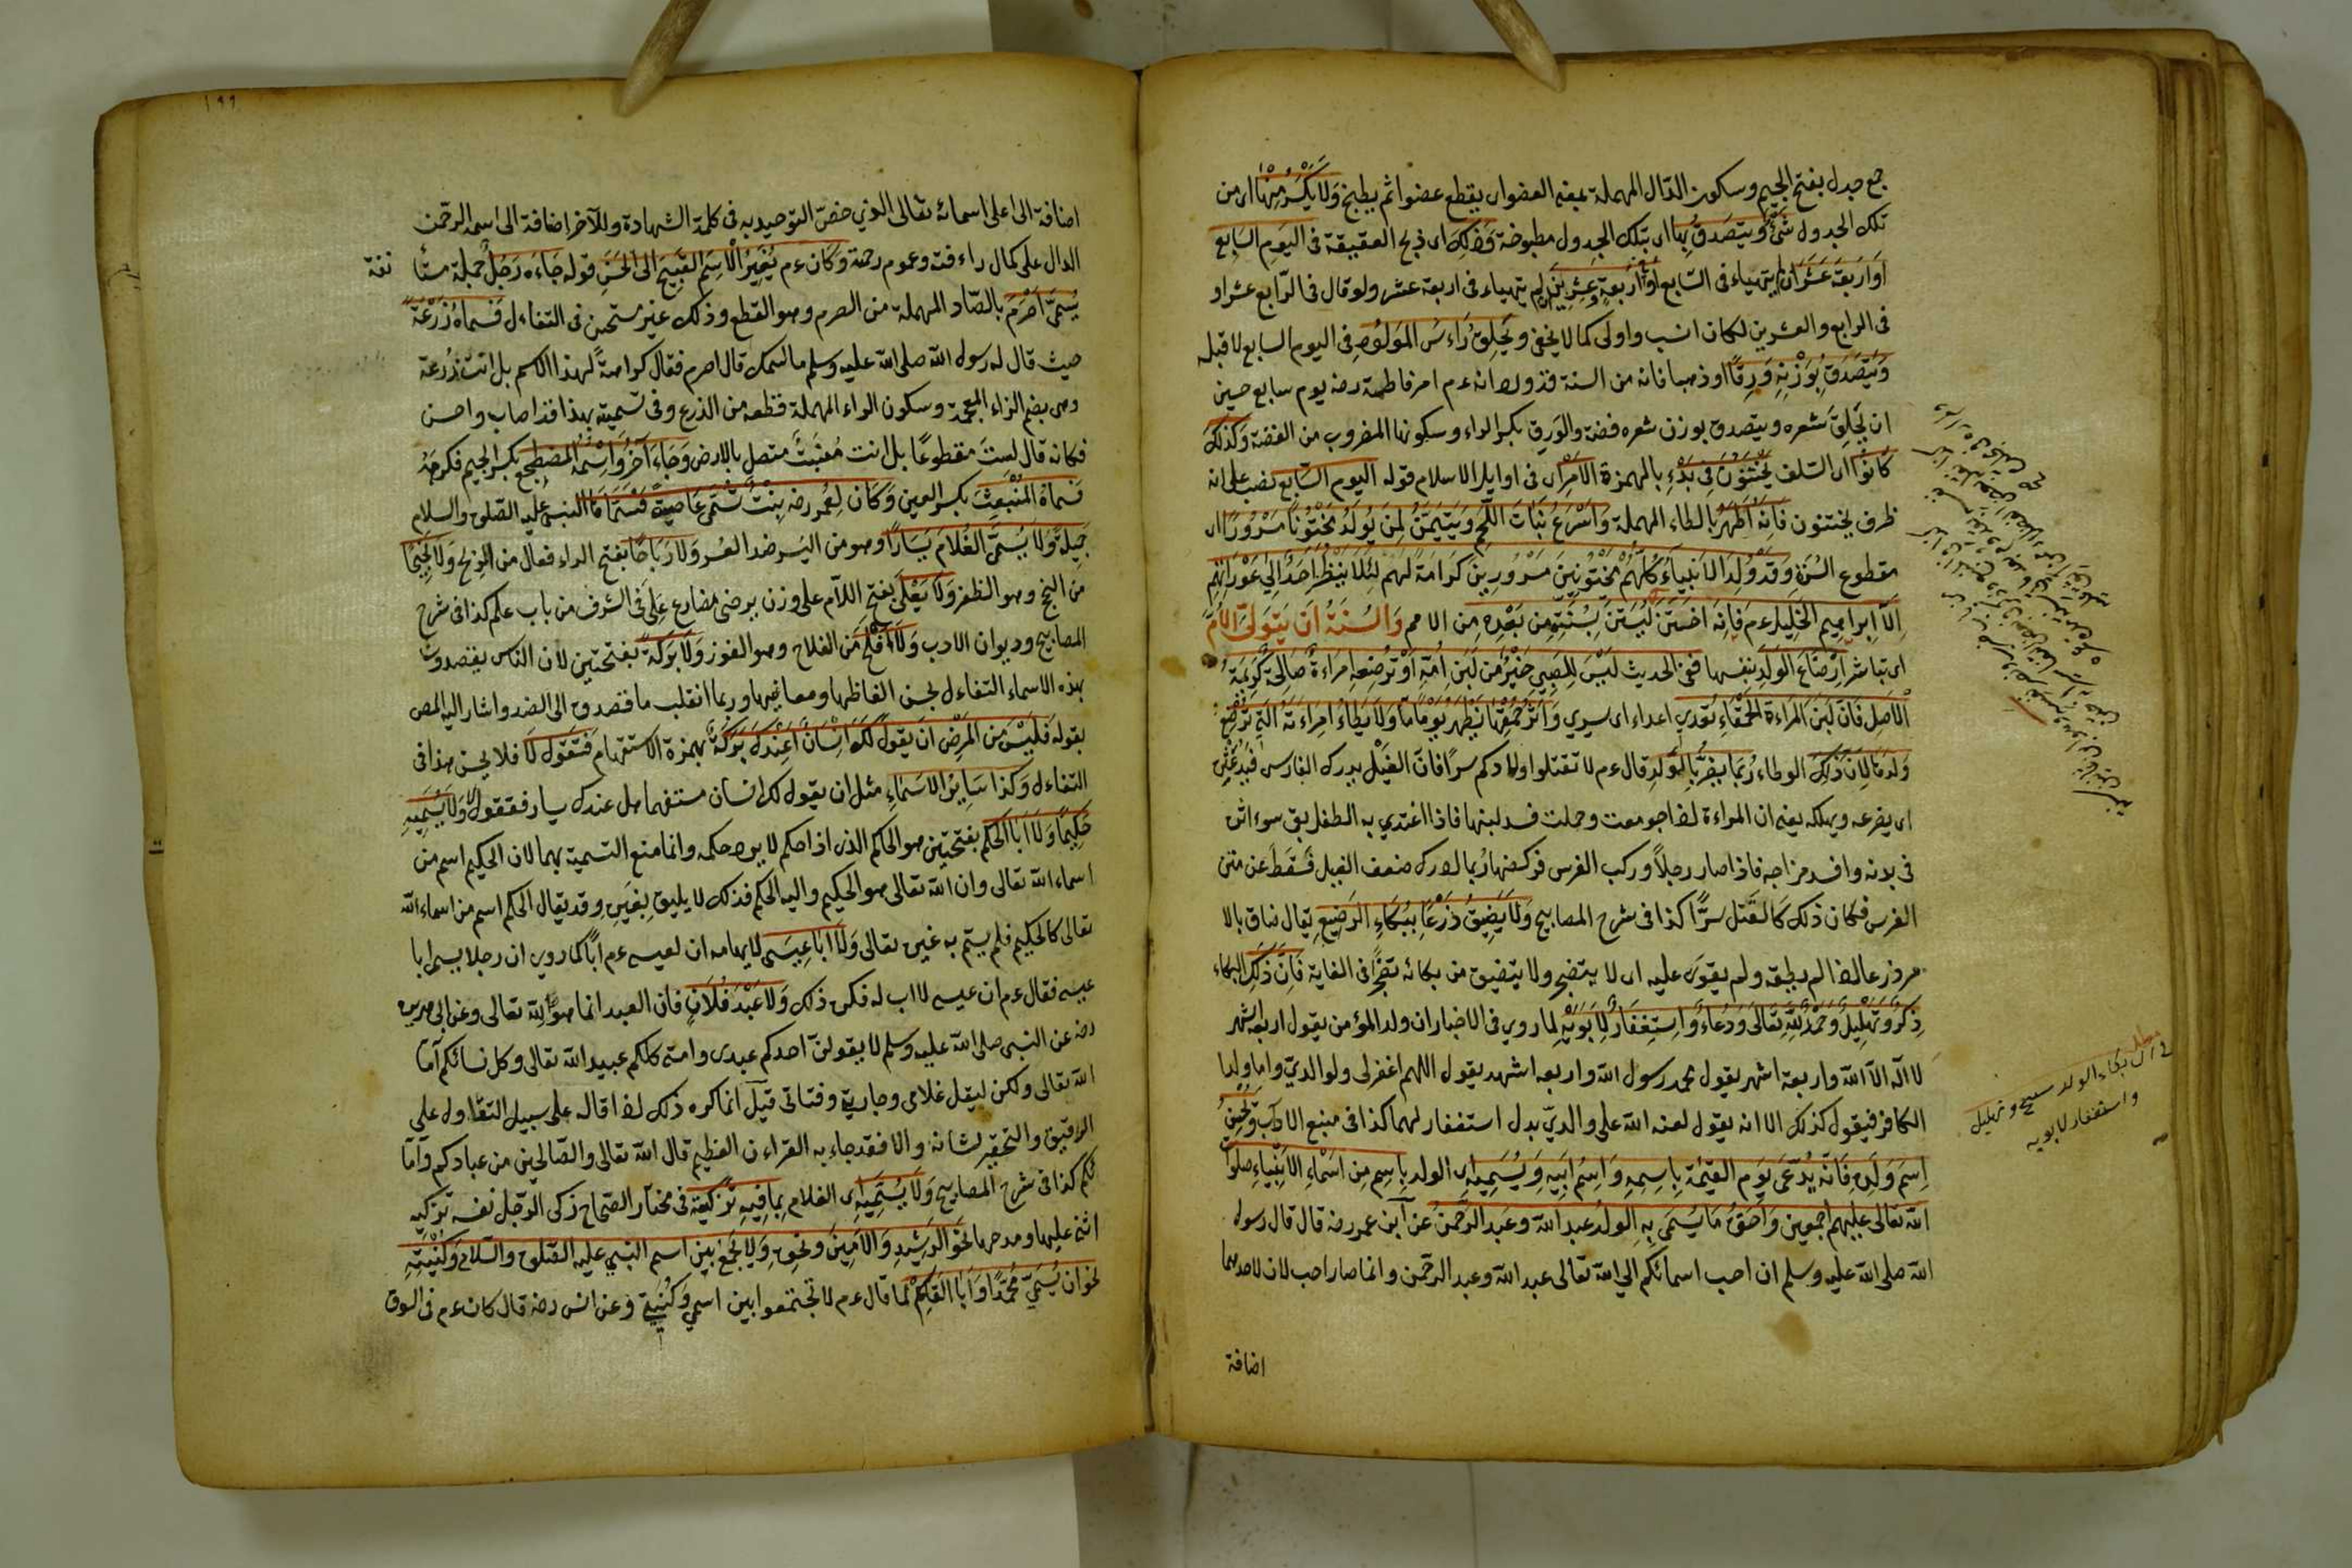 جمع جدل بفتح الجيم وسكون الدال المهملة بمعنى العضو اى يقطع عضوا ثم يطبخ وَلَا يُكْسَرُ مِنْهَا اى من
تلك الجدول شَئٌ وَيَتَصَدَّقُ بِهَا اى بتلك الجدول مطبوخة وَذَلِكَ اى ذبح العقيقة فى اليَوْمِ السَّابِعِ
اَوْ اَرْبَعَةَ عَشَرَ ان لم يتهياء فى السّابع اَوْ اَرْبَعَةٍ وَعِشْرِينَ ان لم يتهياء فى اربعة عشر ولو قال فى الرّابع عشر او
فى الرابع والعشرين لكان انسب واولى كما لا يخفى وَيَحْلِقُ رَاءْسَ المَوْلُودِ فى اليوم السابع لا قبله
وَيَتَصَدَّقُ بِوَزْنِهِ وَرِقًا او ذهبا فانه من السنة فقد ورد انه ءم امر فاطمة رضه يوم سابع حسين
ان يَحْلِقَ شعره ويتصدق بوزن شعره فضة والورق بكسر الراء وسكونها المضروب من الفضة وَكَذَلِكَ
كَانُوا اى السّلف يَخْتَتِنُونَ فِى بَدْءِ بالهمزة الاَمْرِ اى فى اوايل الاسلام قوله اليوم السّابع نصب على انه
ظرف يختتنون فَاِنَّهُ اَطْهَرُ بالطاء المهملة وَاَسْرَعُ نَبَاتَ اللَّحْمِ وَيَتَيَمَّنُ لِمَنْ يُولَدُ مَخْتُونًا مَسْرُورًا اى
مقطوع السُرَّةِ وَقَدْ وُلِدَ الاَنْبِيَاءُ كُلُّهُمْ مَخْتُونِينَ مَسْرُورِينَ كَرَامَةً لَهُمْ لِئَلَّا يَنْظُرَ اَحَدٌ اِلَى عَوْرَاتِهِمْ
اِلَّا اِبراهِيمَ الخَلِيلَ ءم فَاِنَّهُ اخْتَتَنَ لِيُسْتَنَّ بِسُنَّتِهِ مِن بَعْدِهِ مِن الامم وَالسُنَّةُ اَنْ يَتَوَلَّى الاُمُّ
اى تباشر اِرْضَاعَ الوَلَدِ بنفسها ففى الحديث لَيْسَ لِلصَّبِىِّ خَيْرٌ مِن لَبَنِ اُمِّهِ اَوْ تُرْضِعُهُ اِمراءَةٌ صَالِحَةٌ كَرِيمَةُ
الْاَصْلِ فَاِنَّ لَبَنَ المَرْاءَةِ الحَمْقَاءِ يُعْدِى اعداء اى يسرى وَاَثَرُ حُمْقِهَا يَظْهَرُ يَوْمًا مَا وَلَا يَطَاءُ امْرَاءَتَهُ الَّتِى تُرْضِعُ
وَلَدَهَا لِاَنَّ ذَلِكَ الوطاء رُبَمَا يَضُرُّ بِالوَلَدِ قال ءم لا تقتلوا اولادكم سرًا فانّ الغَيْل يدرك الفارس فَيُدَعْثِرُهُ
اى يصرعه ويهلكه يعنى ان المراءة اذا جومعت وحملت فسد لبنها فاذا اغتذى به الطفل بقى سوء اثره
فى بدنه وافسد مزاجه فاذا صار رجلاً وركب الفرس فركضها ربما ادركه ضعف الغيل فَسقَط عن متن
الفرس فكان ذلك كَالقَتل سرًّا كذا فى شرح المصابيح وَلَا يَضِيقُ ذَرْعًا بِبُكَاءِ الرَضِيعِ يقال ضاق بالا
مر ذرعا اذا لم يطقه ولم يقوَ عليه اى لا يتضجر ولا يتضيق من بكائه تضجّرًا فى الغاية فَاِنَّ ذَلِكَ البكاء
ذِكْرٌ وَتَهْلِيلٌ وَحَمْدٌ لِلّٰهِ تَعَالَى وَدُعَاءٌ وَاسْتِغفَارٌ لِاَبَوَيْهِ لما روى فى الاخبار ان ولد المؤمن يقول اربعة اشهر
لا اله الا الله واربعة اشهر يقول محمد رسول الله واربعة اشهر يقول اللهم اغفرلى ولوالديّ واما ولد
الكافر فيقول كذلك الا انه يقول لعنة الله على والديّ بدل استغفار لهما كذا فى منبع الاداب وَيُحْسِنُ
اِسْمَ وَلَدِهِ فَاِنَّهُ يُدْعَى يَوْمَ القِيٰمَةِ بِاِسمِهِ وَاسْمِ اَبِيهِ وَيُسَمِّيهِ اى الولد بِاِسمٍ مِن اَسْمَاءِ الاَنْبِيَاءِ صلواة
الله تعالى عليهم اجمعين وَاَصَقُّ مَا يُسَمَّى بِهِ الوَلَدُ عبد الله وعبد الرَّحمن عن ابن عمر رضه قال قال رسول
الله صلى الله عليه وسلم ان احب اسمائكم الى الله تعالى عبد الله وعبد الرحمن وانما صار احب لان لاحدهما
اضافة
مطلب
فى ان بكاء الولد تسبيح وتهليل
واستغفار لابويه
١٩٩
اضافة الى اعلى اسمائه تعالى الذى خصّ التوحيد به فى كلمة الشهادة وللآخر اضافة الى اسمه الرحمن
الدال على كمال راءفته وعموم رحمته وَكَانَ ءم يُغَيِّرُ الْاِسْمَ القَبِيحَ اِلَى الحَسَنِ قوله جَاءه رَجُلٌ جملة مستأ
نفة
يُسَمَّى اَصْرَمَ بالصّاد المهملة من الصرم وهو القطع وذلك غير مستحسن فى التفاءل فَسَمَّاهُ زُرْعَةً
حيث قال له رسول الله صلى الله عليه وسلم ما اسمك قال اصرم فقال كراهةً لهذا الاسم بل انت زُرعة
وهى بضم الزاء المعجمة وسكون الراء المهملة قطعة من الذرع وفى تسميته بهذا فقد اصاب واحسن
فكانه قال لستَ مقطوعًا بل انت مُنْبَتٌ متصل بالارض وَجَاءَ آخَرُ وَاسْمُهُ المضطَجِع بكسر الجيم فكرهه
فَسَمَّاهُ المُنْبَعِثَ بكسر العين وَكَان لِعُمَر رضه بِنْتٌ تُسَمَّى عَاصِيَةَ فَسَمَّاهَا النبىّ عليه الصّلوة والسلام
جَمِيلَةً وَلَا يُسَمَّى الغُلَام يَسَارًا وهو من اليُسر ضد العُسر وَلَا رَبَاحًا بفتح الراء فعال من الربح وَلَا نَجِيحًا
من النجح وهو الظفر وَلَا يَعْلَى بفتح اللام على وزن يرضى مضارع عَلِىَ فى الشرف من باب علم كذا فى شرح
المصابيح وديوان الادب وَلَا اَفْلَحَ من الفلاح وهو الفوز وَلَا بَرَكَةَ بفتحتين لان الناس يقصدون
بهذه الاسماء التفاءل لحسن الفاظها ومعانيها وربما انقلب ما قصدوه الى الضد واشار اليه المص
بقوله فَلَيْسَ مِن المَرْضِىِّ اَن يَقُولَ لَكَ اِنْسَانٌ اَعِنْدَكَ بَرَكَةٌ بهمزة الاستفهام فَتَقُولَ لَا فلا يحسن هذا فى
التفاءل وَكَذَا سَايِرُ الاَسْمَاءِ مثل ان يقول لك انسان مستفهما هل عندك يسار فتقول لا وَلَا يُسَمِّيهِ
حَكِيمًا وَلَا اَبَا الحَكَم بفتحتين هو الحاكم الذى اذا حكم لا يرد حكمه وانما منع التسمية بهما لان الحكيم اسم من
اسماء الله تعالى وان الله تعالى هو الحكيم واليه الحكم فذلك لا يليق بِغَيرِهِ وقد يقال الحكم اسم من اسماء الله
تعالى كالحكيم فلم يسمّ به غيره تعالى وَلَا اَبَا عِيسَى لايهامه ان لعيسى ءم اَبًا كما روى ان رجلا يسمى ابا
عيسى فقال ءم ان عيسى لا اب له فكره ذلك وَلَا عَبْدَ فُلَانٍ فان العبد انما هو لله تعالى وعن ابى هريرة
رضه عن النبى صلى الله عليه وسلم لا يقولنّ احدكم عبدى وامتى كلكم عبيد الله تعالى وكل نسائكم اماء
الله تعالى ولكن ليقل غلامى وجاريتى وفتاتى قيل انما كره ذلك اذا قاله على سبيل التطاول على
الرقيق والتحقير لشانه والا فقد جاء به القراءن العظيم قال الله تعالى والصّالحين من عبادكم وامآ
ئكم كذا فى شرح المصابيح وَلَا يُسَمِّيهِ اى الغلام بِمَا فِيهِ تَزْكِيَةٌ فى مختار الصّحاح زكى الرّجل نفسه تزكيه
اثنى عليها ومدحها نَحْوَ الرَّشِيدِ وَالاَمِينِ ونحوه وَلَا يَجْمَعُ بين اسم النبىّ عليه الصّلوة والسّلام وَكُنْيَتِهِ
نحو ان يُسَمَّى مُحَمَّدًا وَاَبَا القَاسِمِ لما قال ءم لا تجتمعوا بين اسمى وكُنيتى وعن انس رضه قال كان ءم فى السوق